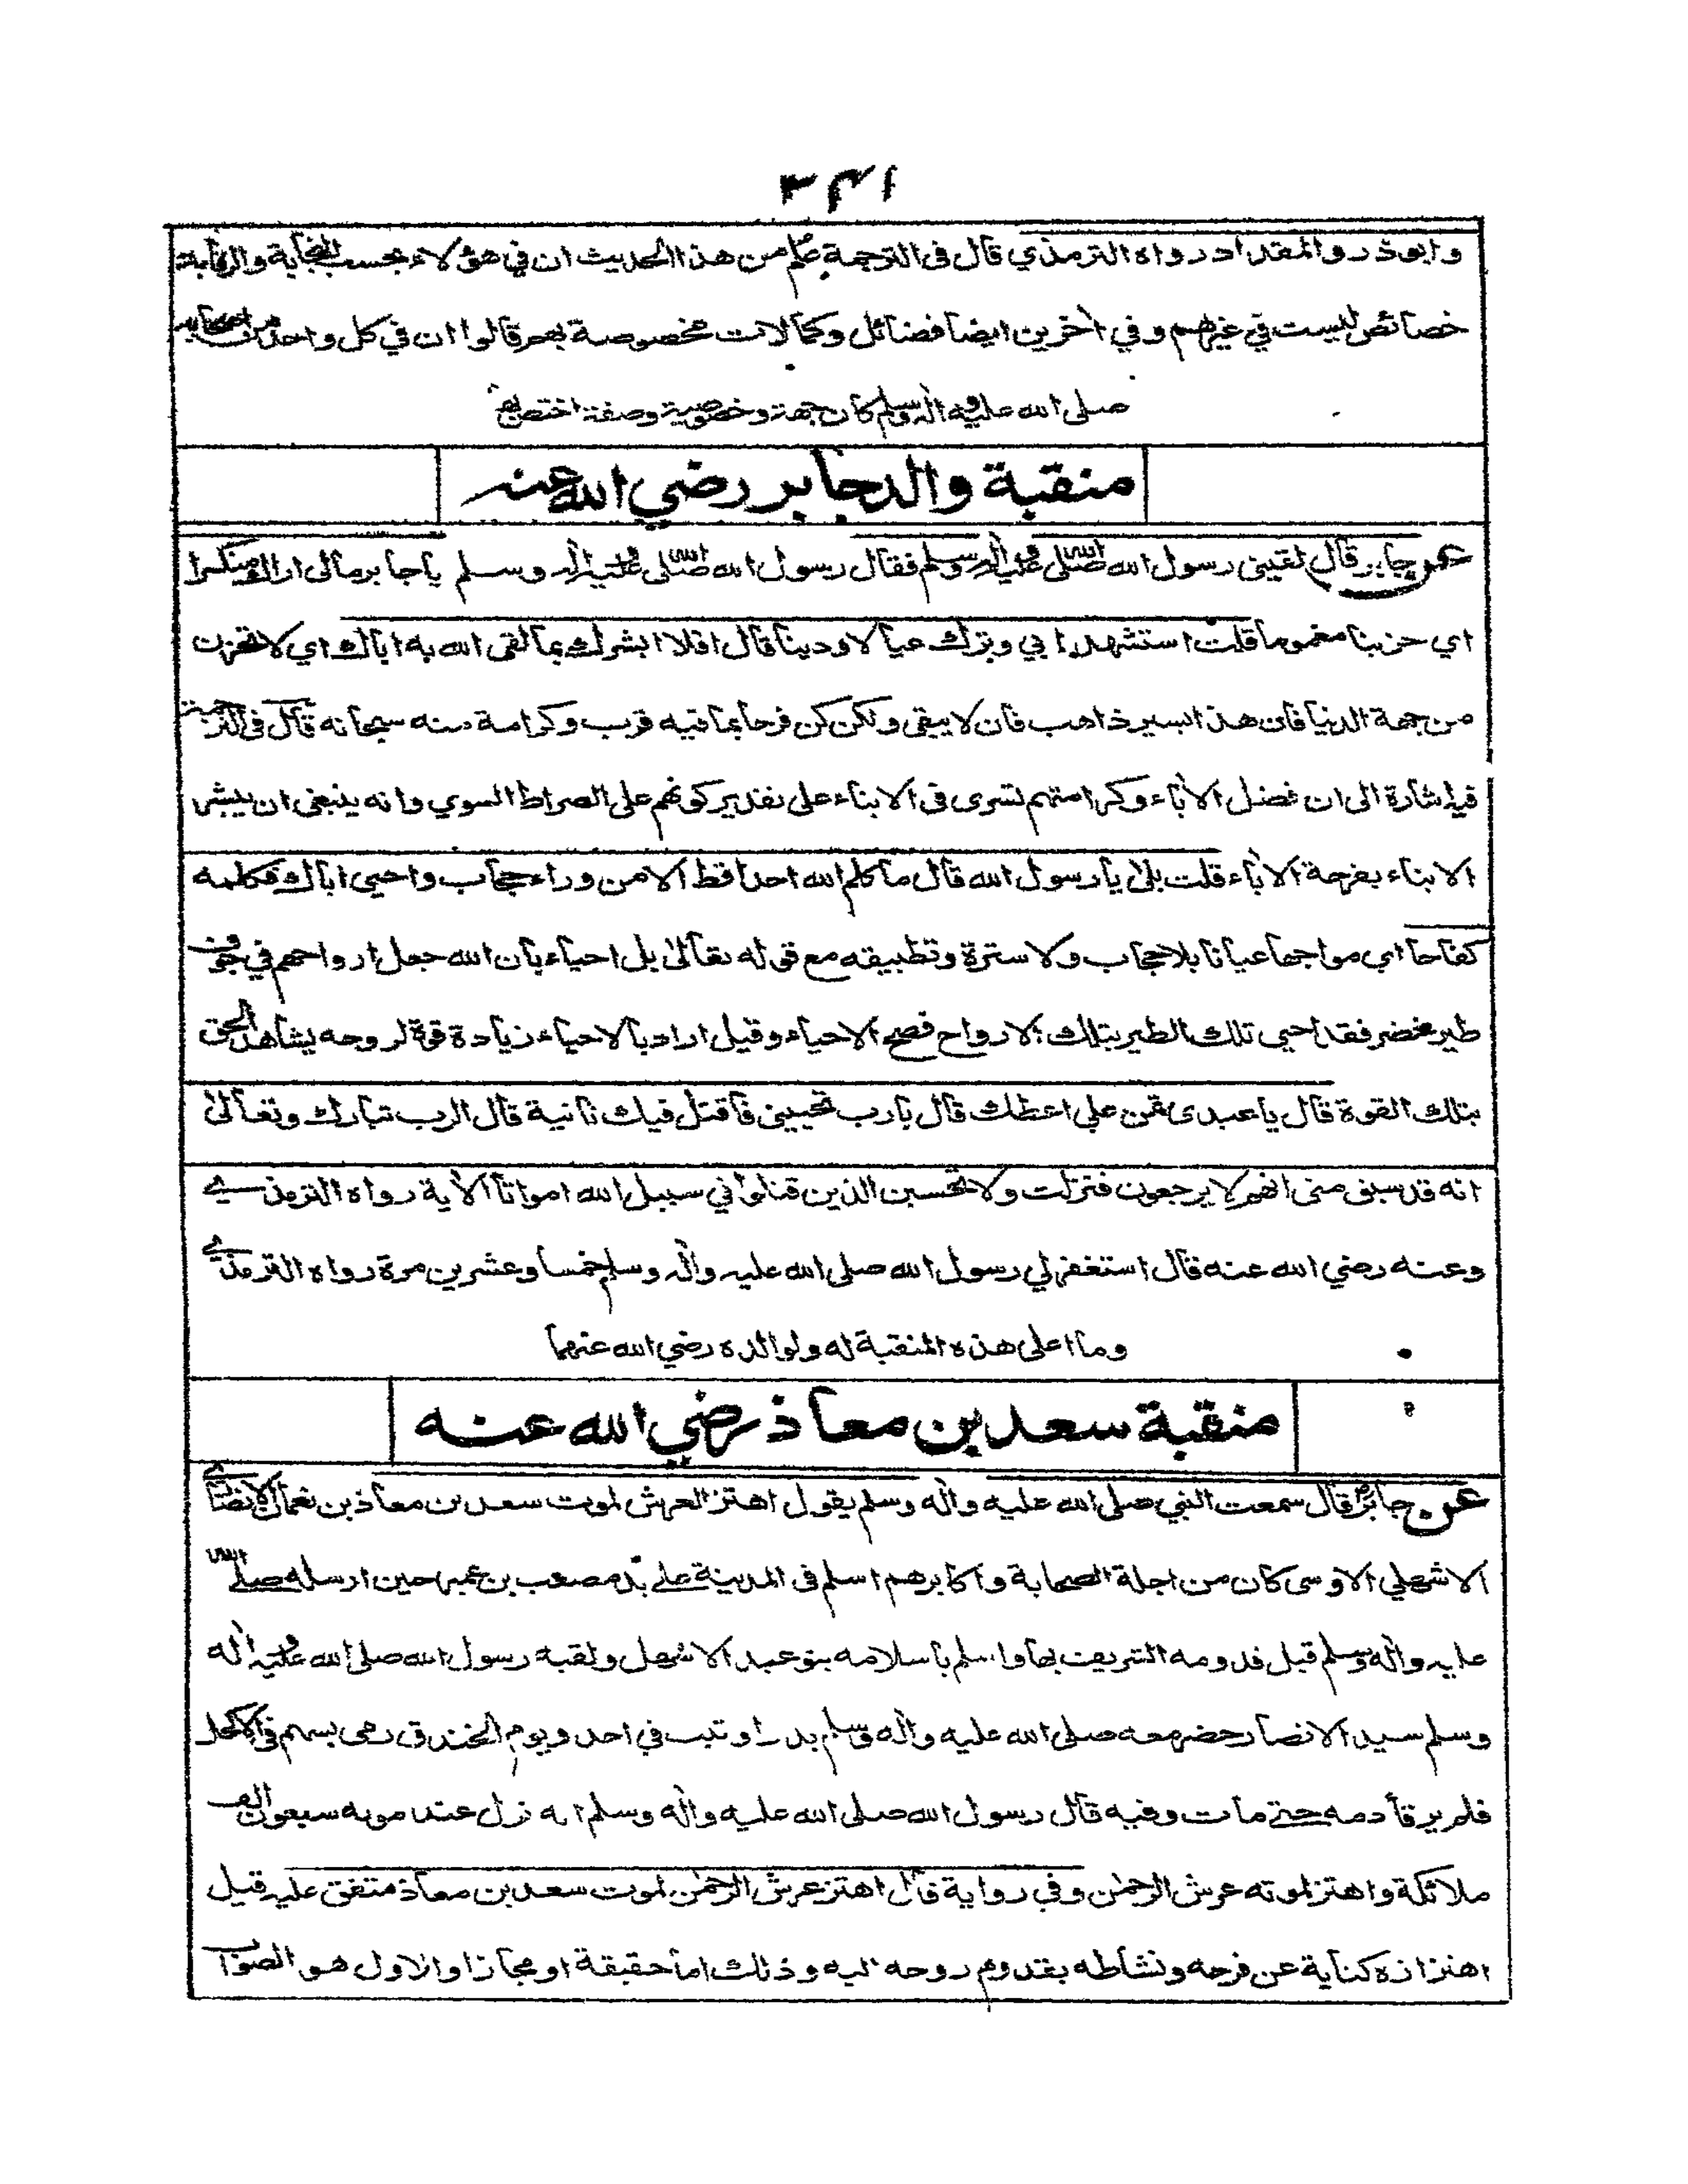 ٣٤١
وابوذر والمقداد رواه الترمذي قال فى الترجمة علم من هذا الحديث ان في هؤلاء بحسب النجابة والرقابة
خصائص ليست في غيرهم وفي اخرين ايضا فضائل وكمالات مخصوصة بهم قالوا ان في كل واحد من اصحابه
صلى الله عليه واله وسلم كان جهة وخصوصية وصفة اختص بها
منقبة والد جابر رضي الله عنه
عن جابر قال لقينى رسول الله صلى الله عليه واله وسلم فقال رسول الله صلى الله عليه واله وسلم ياجابر مالى اراك منكسرا
اي حزينا مغموما قلت استشهد ابي وترك عيالا ودينا قال افلا ابشرك بما لقى الله به اباك اي لا تحزن
من جهة الدنيا فان هذا يسير ذاهب فان لا يبقى ولكن كن فرحا بما فيه قرب وكرامة منه سبحانه قال فى الترجمة
فيه اشارة الى ان فضل الاباء وكرامتهم تسرى فى الابناء على تقدير كونهم على الصراط السوي وانه ينبغى ان يبشر
الابناء بفرحة الاباء قلت بلى يا رسول الله قال ما كلم الله احدا قط الا من وراء حجاب واحيى اباك فكلمه
كفاحا اي مواجها عيانا بلا حجاب ولا سترة وتطبيقه مع قوله تعالى بل احياء بان الله جعل ارواحهم في جوف
طير خضر فقد احيى تلك الطير بتلك الارواح فصح الاحياء وقيل اراد بالاحياء زيادة قوة لروحه يشاهد الحق
بتلك القوة قال يا عبدى تمن علي اعطك قال يارب تحيينى فاقتل فيك ثانية قال الرب تبارك وتعالى
انه قد سبق منى انهم لا يرجعون فنزلت ولا تحسبن الذين قتلوا في سبيل الله امواتا الاية رواه الترمذي
وعنه رضي الله عنه قال استغفر لي رسول الله صلى الله عليه واله وسلم خمسا وعشرين مرة رواه الترمذي
وما اعلى هذه المنقبة له ولوالده رضي الله عنهما
منقبة سعد بن معاذ رضي الله عنه
عن جابر قال سمعت النبي صلى الله عليه واله وسلم يقول اهتز العرش لموت سعد بن معاذ بن نعمان الانصاري
الاشهلي الاوسى كان من اجلة الصحابة واكابرهم اسلم فى المدينة على يد مصعب بن عمير حين ارسله صلى الله
عليه واله وسلم قبل قدومه الشريف بها واسلم باسلامه بنو عبد الاشهل ولقبه رسول الله صلى الله عليه واله
وسلم سيد الانصار حضر معه صلى الله عليه واله وسلم بدرا وثبت في احد ويوم الخندق رمى بسهم فى الاكحل
فلم يرقأ دمه حتى مات وفيه قال رسول الله صلى الله عليه واله وسلم انه نزل عند موته سبعون الف
ملائكة واهتز لموته عرش الرحمن وفي رواية قال اهتز عرش الرحمن لموت سعد بن معاذ متفق عليه قيل
اهتزازه كناية عن فرحه ونشاطه بقدوم روحه اليه وذلك اما حقيقة او مجازا والاول هو الصواب